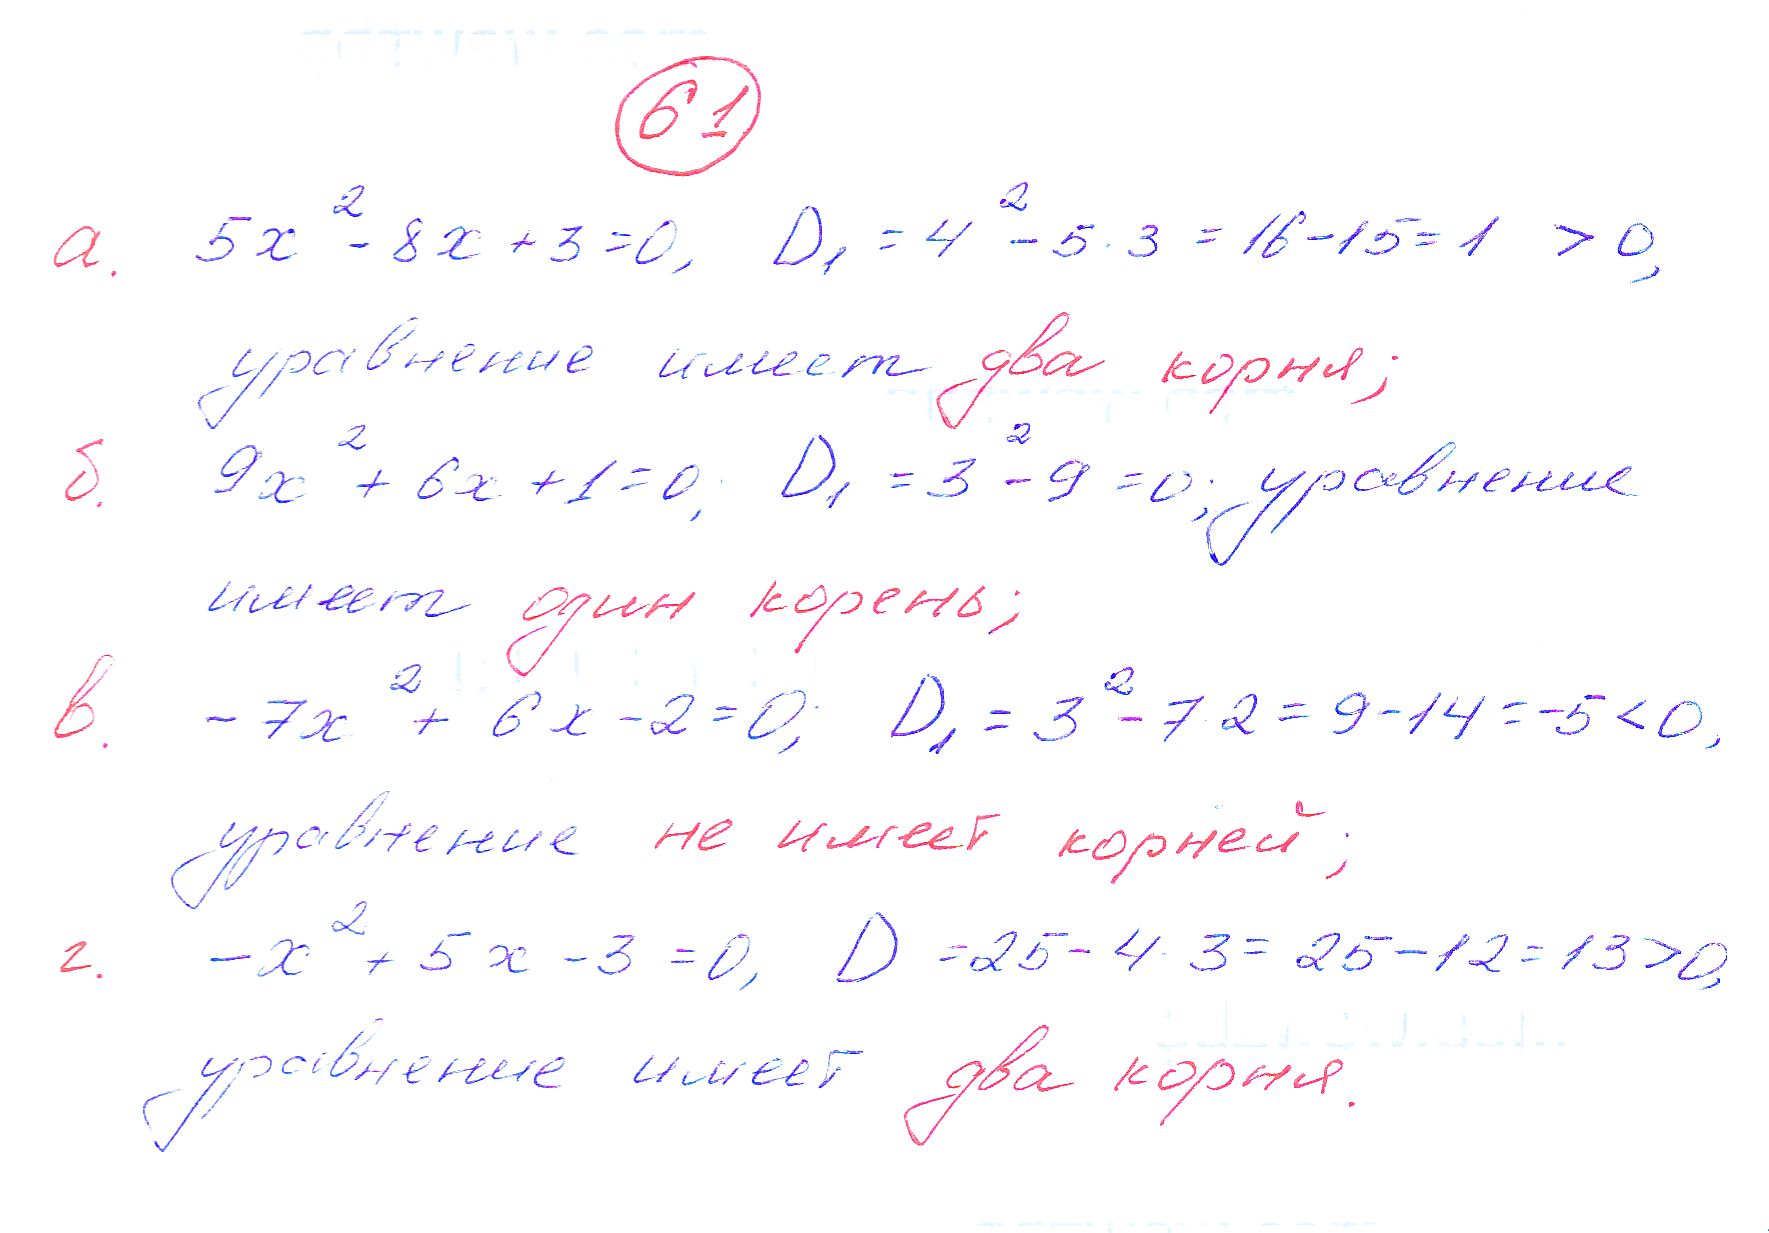 61
а. 5x² - 8x + 3 = 0, D₁ = 4² - 5·3 = 16 - 15 = 1 > 0,
уравнение имеет два корня;
б. 9x² + 6x + 1 = 0; D₁ = 3² - 9 = 0; уравнение
имеет один корень;
в. -7x² + 6x - 2 = 0; D₁ = 3² - 7·2 = 9 - 14 = -5 < 0,
уравнение не имеет корней;
г. -x² + 5x - 3 = 0, D = 25 - 4·3 = 25 - 12 = 13 > 0,
уравнение имеет два корня.